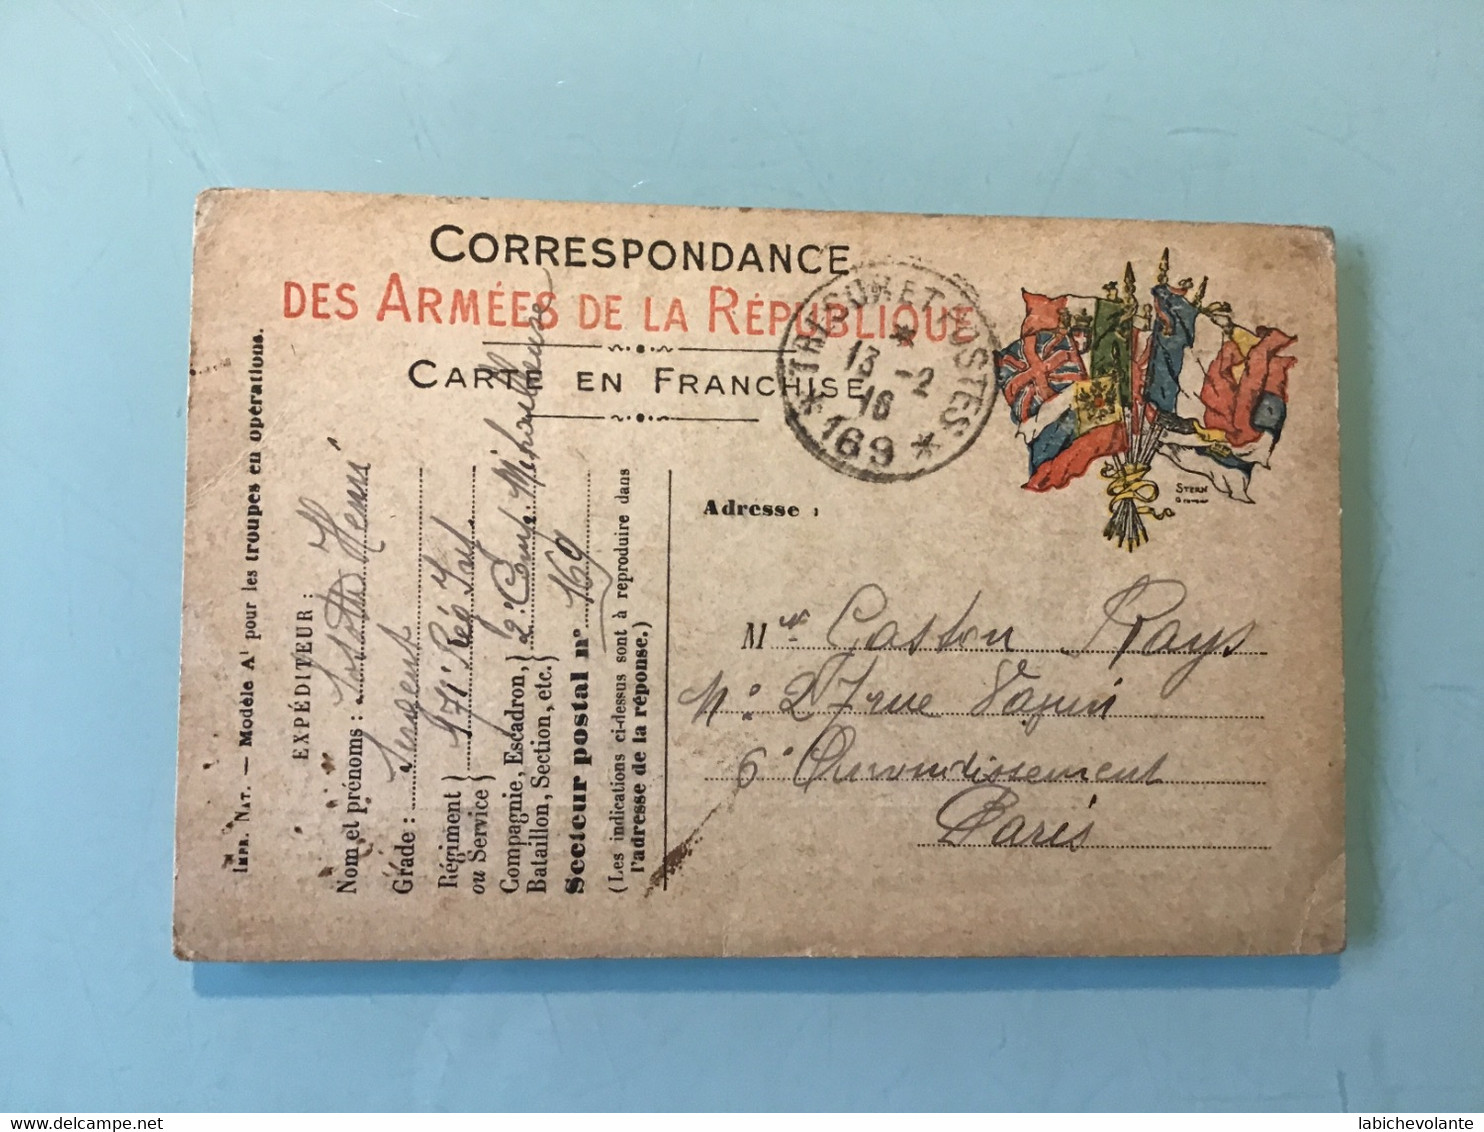 CORRESPONDANCE
DES ARMÉES DE LA RÉPUBLIQUE
CARTE EN FRANCHISE
TRESOR ET POSTES
13 -2
16
* 169 *
STERN
Graveur
IMPR. NAT. — Modèle A¹ pour les troupes en opérations.
EXPÉDITEUR :
Nom et prénoms : Henri
Grade : Sergent
Régiment ou Service } 171e Rég Inf
Compagnie, Escadron, Bataillon, Section, etc. } 2e Comp. Mitrailleuse
Secteur postal n° 169
(Les indications ci-dessus sont à reproduire dans
l'adresse de la réponse.)
Adresse :
Mr Gaston Rays
N° 27 rue Vavin
6e Arrondissement
Paris
labichevolante